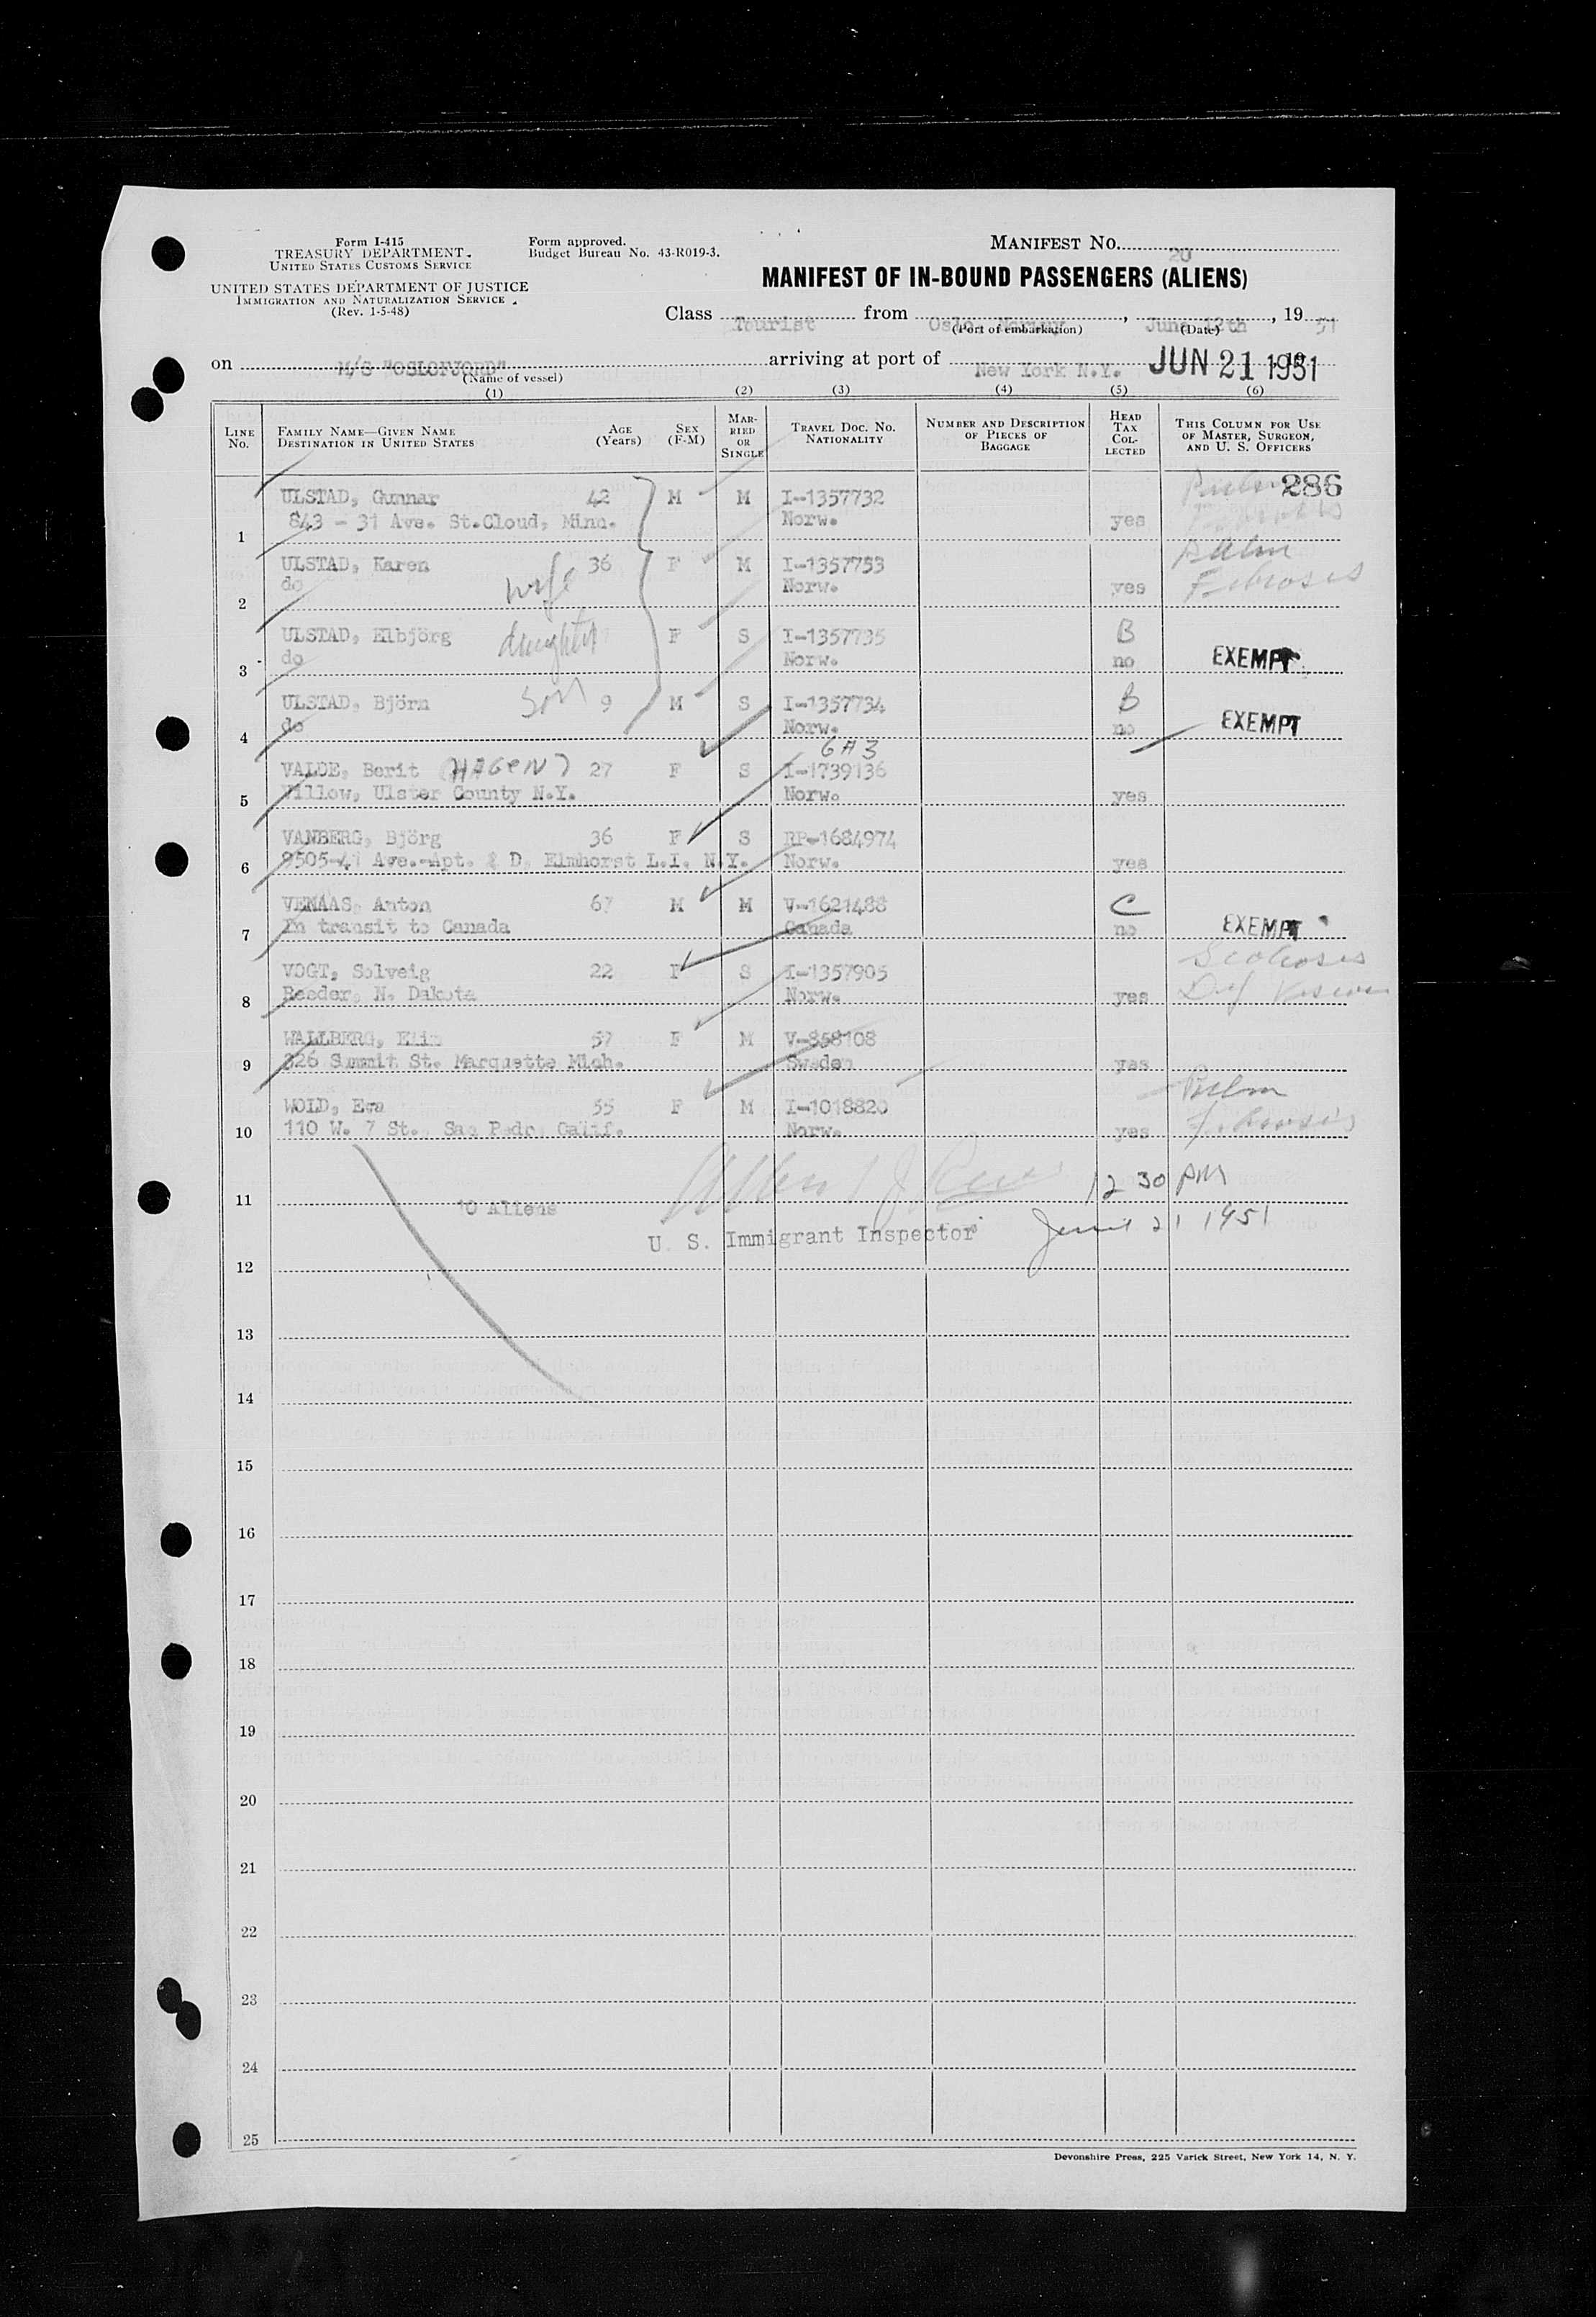 Form I-415
TREASURY DEPARTMENT.
UNITED STATES CUSTOMS SERVICE
UNITED STATES DEPARTMENT OF JUSTICE
IMMIGRATION AND NATURALIZATION SERVICE
(Rev. 1-5-48)
Form approved.
Budget Bureau No. 43-R019-3.
MANIFEST NO. 20
MANIFEST OF IN-BOUND PASSENGERS (ALIENS)
Class Tourist from Oslo, Norway, June 12th, 19 51
(Port of embarkation) (Date)
on M/S "OSLOFJORD" arriving at port of New York N.Y. JUN 21 1951
(Name of vessel)
(1) (2) (3) (4) (5) (6)
LINE No. FAMILY NAME—GIVEN NAME DESTINATION IN UNITED STATES AGE (Years) SEX (F-M) MARRIED OR SINGLE TRAVEL DOC. NO. NATIONALITY NUMBER AND DESCRIPTION OF PIECES OF BAGGAGE HEAD TAX COLLECTED THIS COLUMN FOR USE OF MASTER, SURGEON, AND U. S. OFFICERS
286
ULSTAD, Gunnar 42 M M I-1357732
1 843 - 31 Ave. St.Cloud, Minn. Norw. yes
ULSTAD, Karen 36 F M I-1357753 Pulm
2 do wife Norw. yes Fibrosis
ULSTAD, Elbjörg daughter F S I-1357735 B
3 do Norw. no EXEMPT
ULSTAD, Björn son 9 M S I-1357734 B
4 do Norw. no EXEMPT
6A3
VALDE, Berit (HAGEN) 27 F S I-1739136
5 Willow, Ulster County N.Y. Norw. yes
VANBERG, Björg 36 F S RP-1684974
6 9505-41 Ave.-Apt. D, Elmhorst L.I. N.Y. Norw. yes
VENAAS, Anton 67 M M V-1621488 C
7 In transit to Canada Canada no EXEMPT
VOGT, Solveig 22 F S I-1357905 Scoliosis
8 Reeder, N. Dakota Norw. yes
WALLBERG, Elin 57 F M V-858108
9 326 Summit St. Marquette Mich. Sweden yes
WOLD, Eva 55 F M I-1018820 Pulm
10 110 W. 7 St. San Pedro Calif. Norw. yes Fibrosis
12 30 PM
11 10 Aliens
U. S. Immigrant Inspector June 21 1951
12
13
14
15
16
17
18
19
20
21
22
23
24
25
Devonshire Press, 225 Varick Street, New York 14, N. Y.